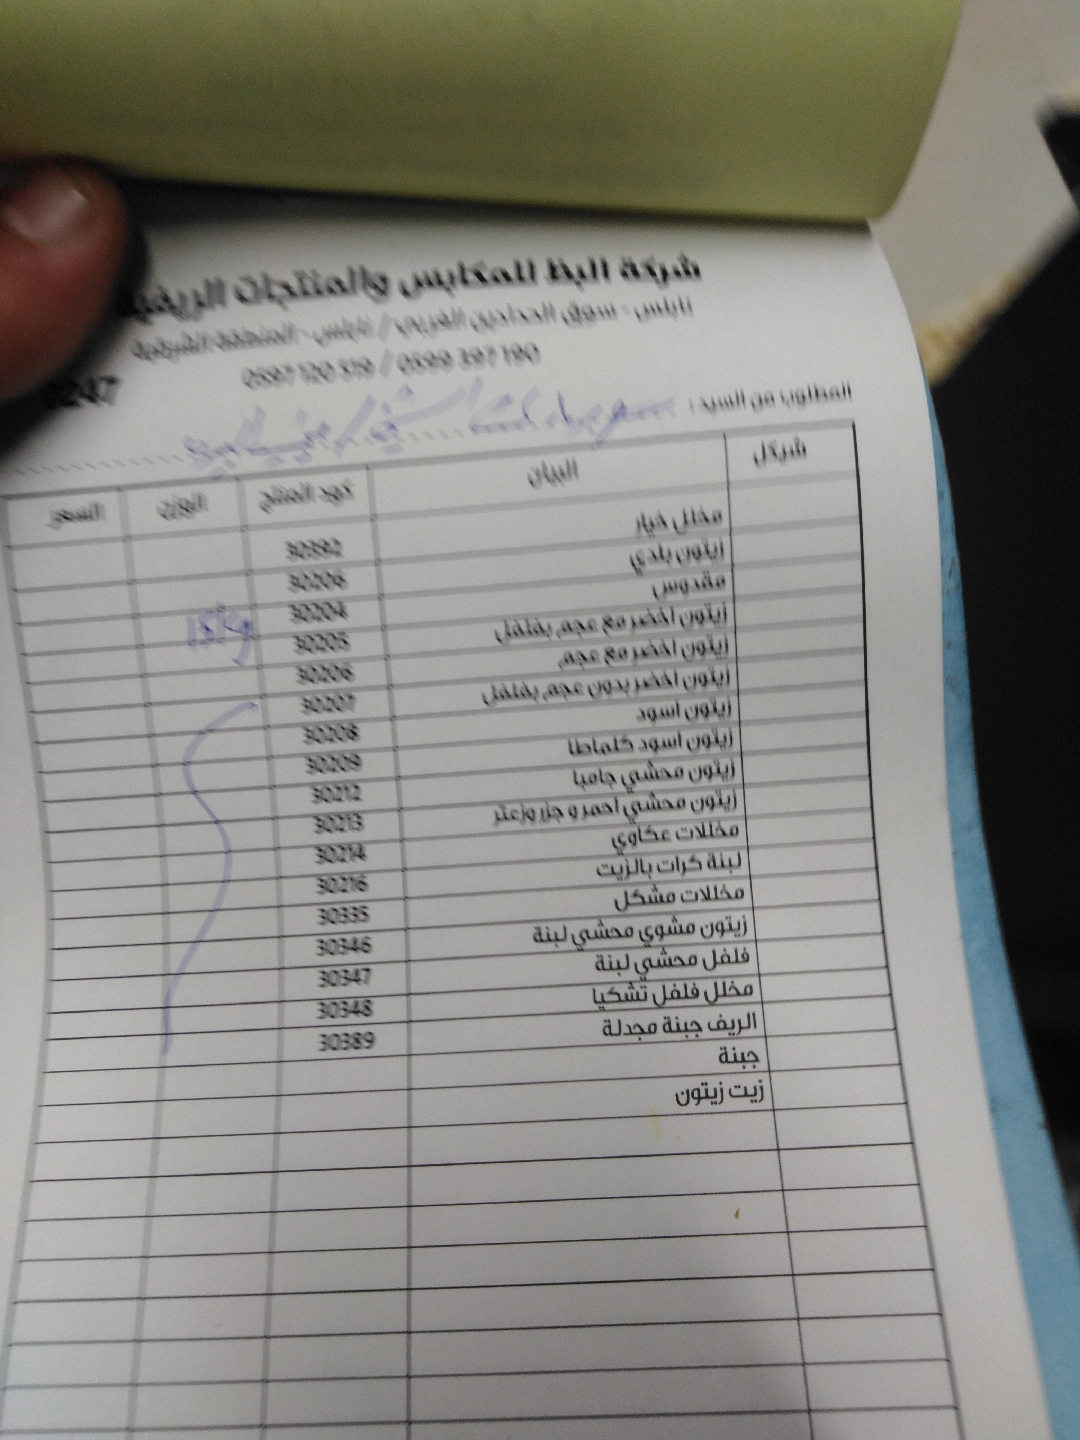 شركة البظ للمكابس والمنتجات الريفية
نابلس - سوق الحدادين الغربي / نابلس - المنطقة الشرقية
0599 397 190 / 0597 120 319
0247
المطلوب من السيد :
شيكل البيان كود المنتج الوزن السعر
مخلل خيار
زيتون بلدي 30392
مقدوس 30206
زيتون اخضر مع عجم بفلفل 30204
زيتون اخضر مع عجم 30205
زيتون اخضر بدون عجم بفلفل 30206
زيتون اسود 30207
زيتون اسود كلماطا 30208
زيتون محشي جامبا 30209
زيتون محشي احمر و جزر وزعتر 30212
مخللات عكاوي 30213
لبنة كرات بالزيت 30214
مخللات مشكل 30216
زيتون مشوي محشي لبنة 30335
فلفل محشي لبنة 30346
مخلل فلفل تشكيا 30347
الريف جبنة مجدلة 30348
جبنة 30389
زيت زيتون